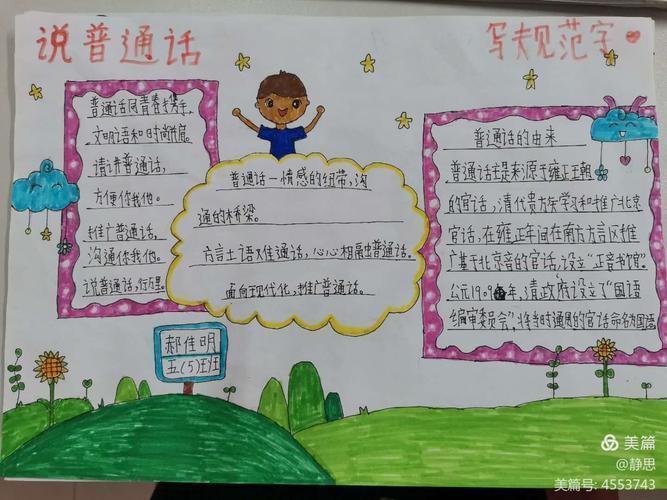 说普通话
写规范字
普通话同青春携手,
文明语和时尚
请讲普通话,
方便你我他。
推广普通话,
沟通你我他。
说普通话,行万里。
普通话一情感的纽带,沟
通的桥梁。
方言土语难通话,心心相融普通话。
面向现代化,推广普通话。
普通话的由来
普通话主是来源于雍正王朝
的官话,清代贵族学习和推广北京
官话,在雍正年间在南方方言区推
广基于北京音的官话,设立"正音书馆"。
公元1909年,清政府设立了"国语
编审委员会",将当时通用的官话命名为国语
郝佳明
五(5)班
美篇
@静思
美篇号: 4553743